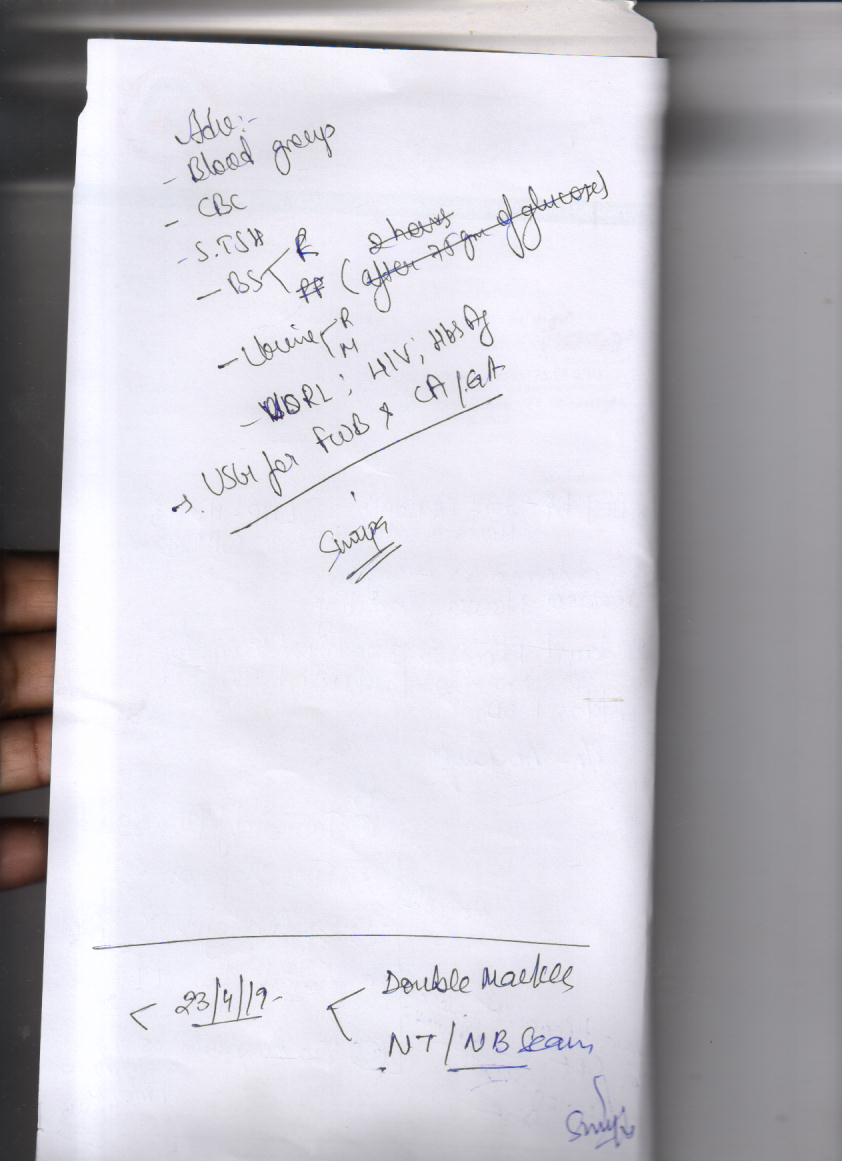 Adv:-
- Blood group
- CBC
- S.TSH
- BS < R
PP (after 75 gm of glucose)
2 hours
- Urine < R
M
- VDRL; HIV; HbsAg
→ USG for FWB & CA/GA
< 23/4/19 - < Double Marker
NT/NB Scan